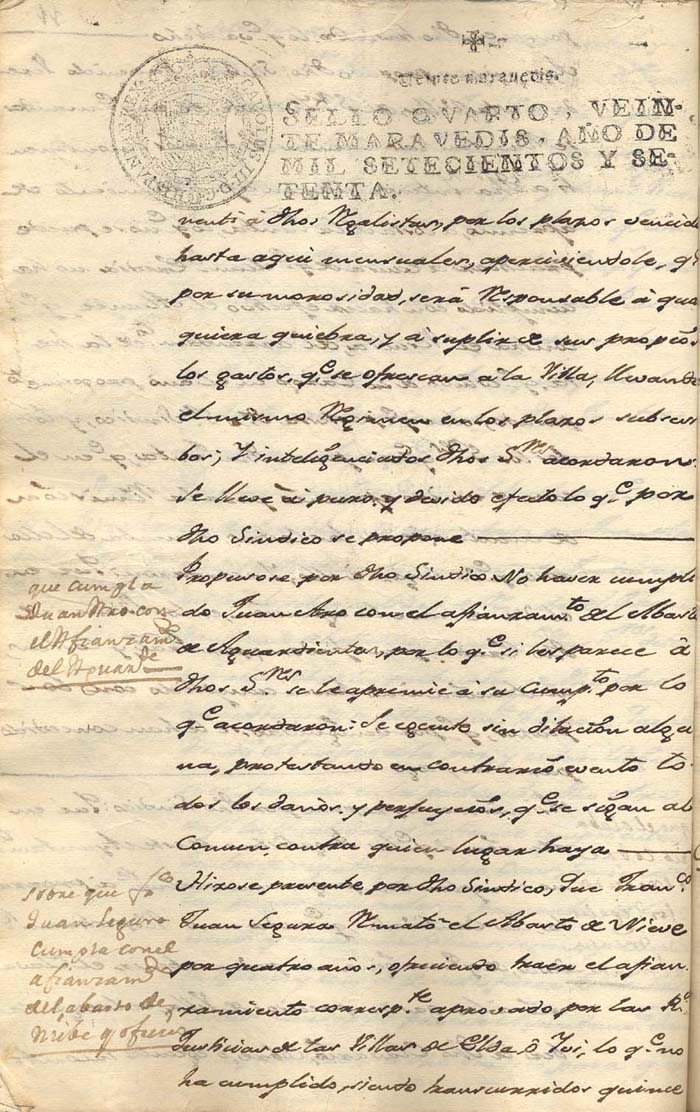 Veinte maravedis.
SELLO QVARTO, VEIN-
TE MARAVEDIS, AÑO DE
MIL SETECIENTOS Y SE-
TENTA.
CAROLUS III D G
á dhos por los plazos vencid
hasta aqui mensuales, aperciviendole, q.e
por su morosidad, será Responsable á qual
quiera quiebra, y á suplir de sus propios
los gastos, q.e se ofrescan á la Villa, llevando
el mismo Regimen en los plazos subcesi
bos; Y inteligenciados dhos S.res acordaron
Se lleve á puro, y devido efecto lo q.e por
dho Sindico se propone
que cumpla
Juan Aro con
el Afianzam.to
del Aguard.te
Propusose por dho Sindico No haver cumpli
do Juan Aro con el afianzam.to del Abasto
de Aguardientes, por lo q.e si les parece á
dhos S.res se le apremie á su cump.to por lo
q.e acordaron: Se egecute sin dilacion algu
na, protestando en contrario evento to
dos los daños, y perjuycios, q.e se sigan al
Comun, contra quien lugar haya
sobre que fr.co
Juan Seguro
cumpla con el
afianzam.to
del abasto de
Niebe y ofrece
Hizose presente por dho Sindico, Que Fran.co
Juan Segura Remató el Abasto de Nieve
por quatro años, ofreciendo hacer el afian
zamiento corresp.te aprovado por las R.s
Justicias de las Villas de Elda, ó Ivi, lo q.e no
ha cumplido, siendo transcurridos quince